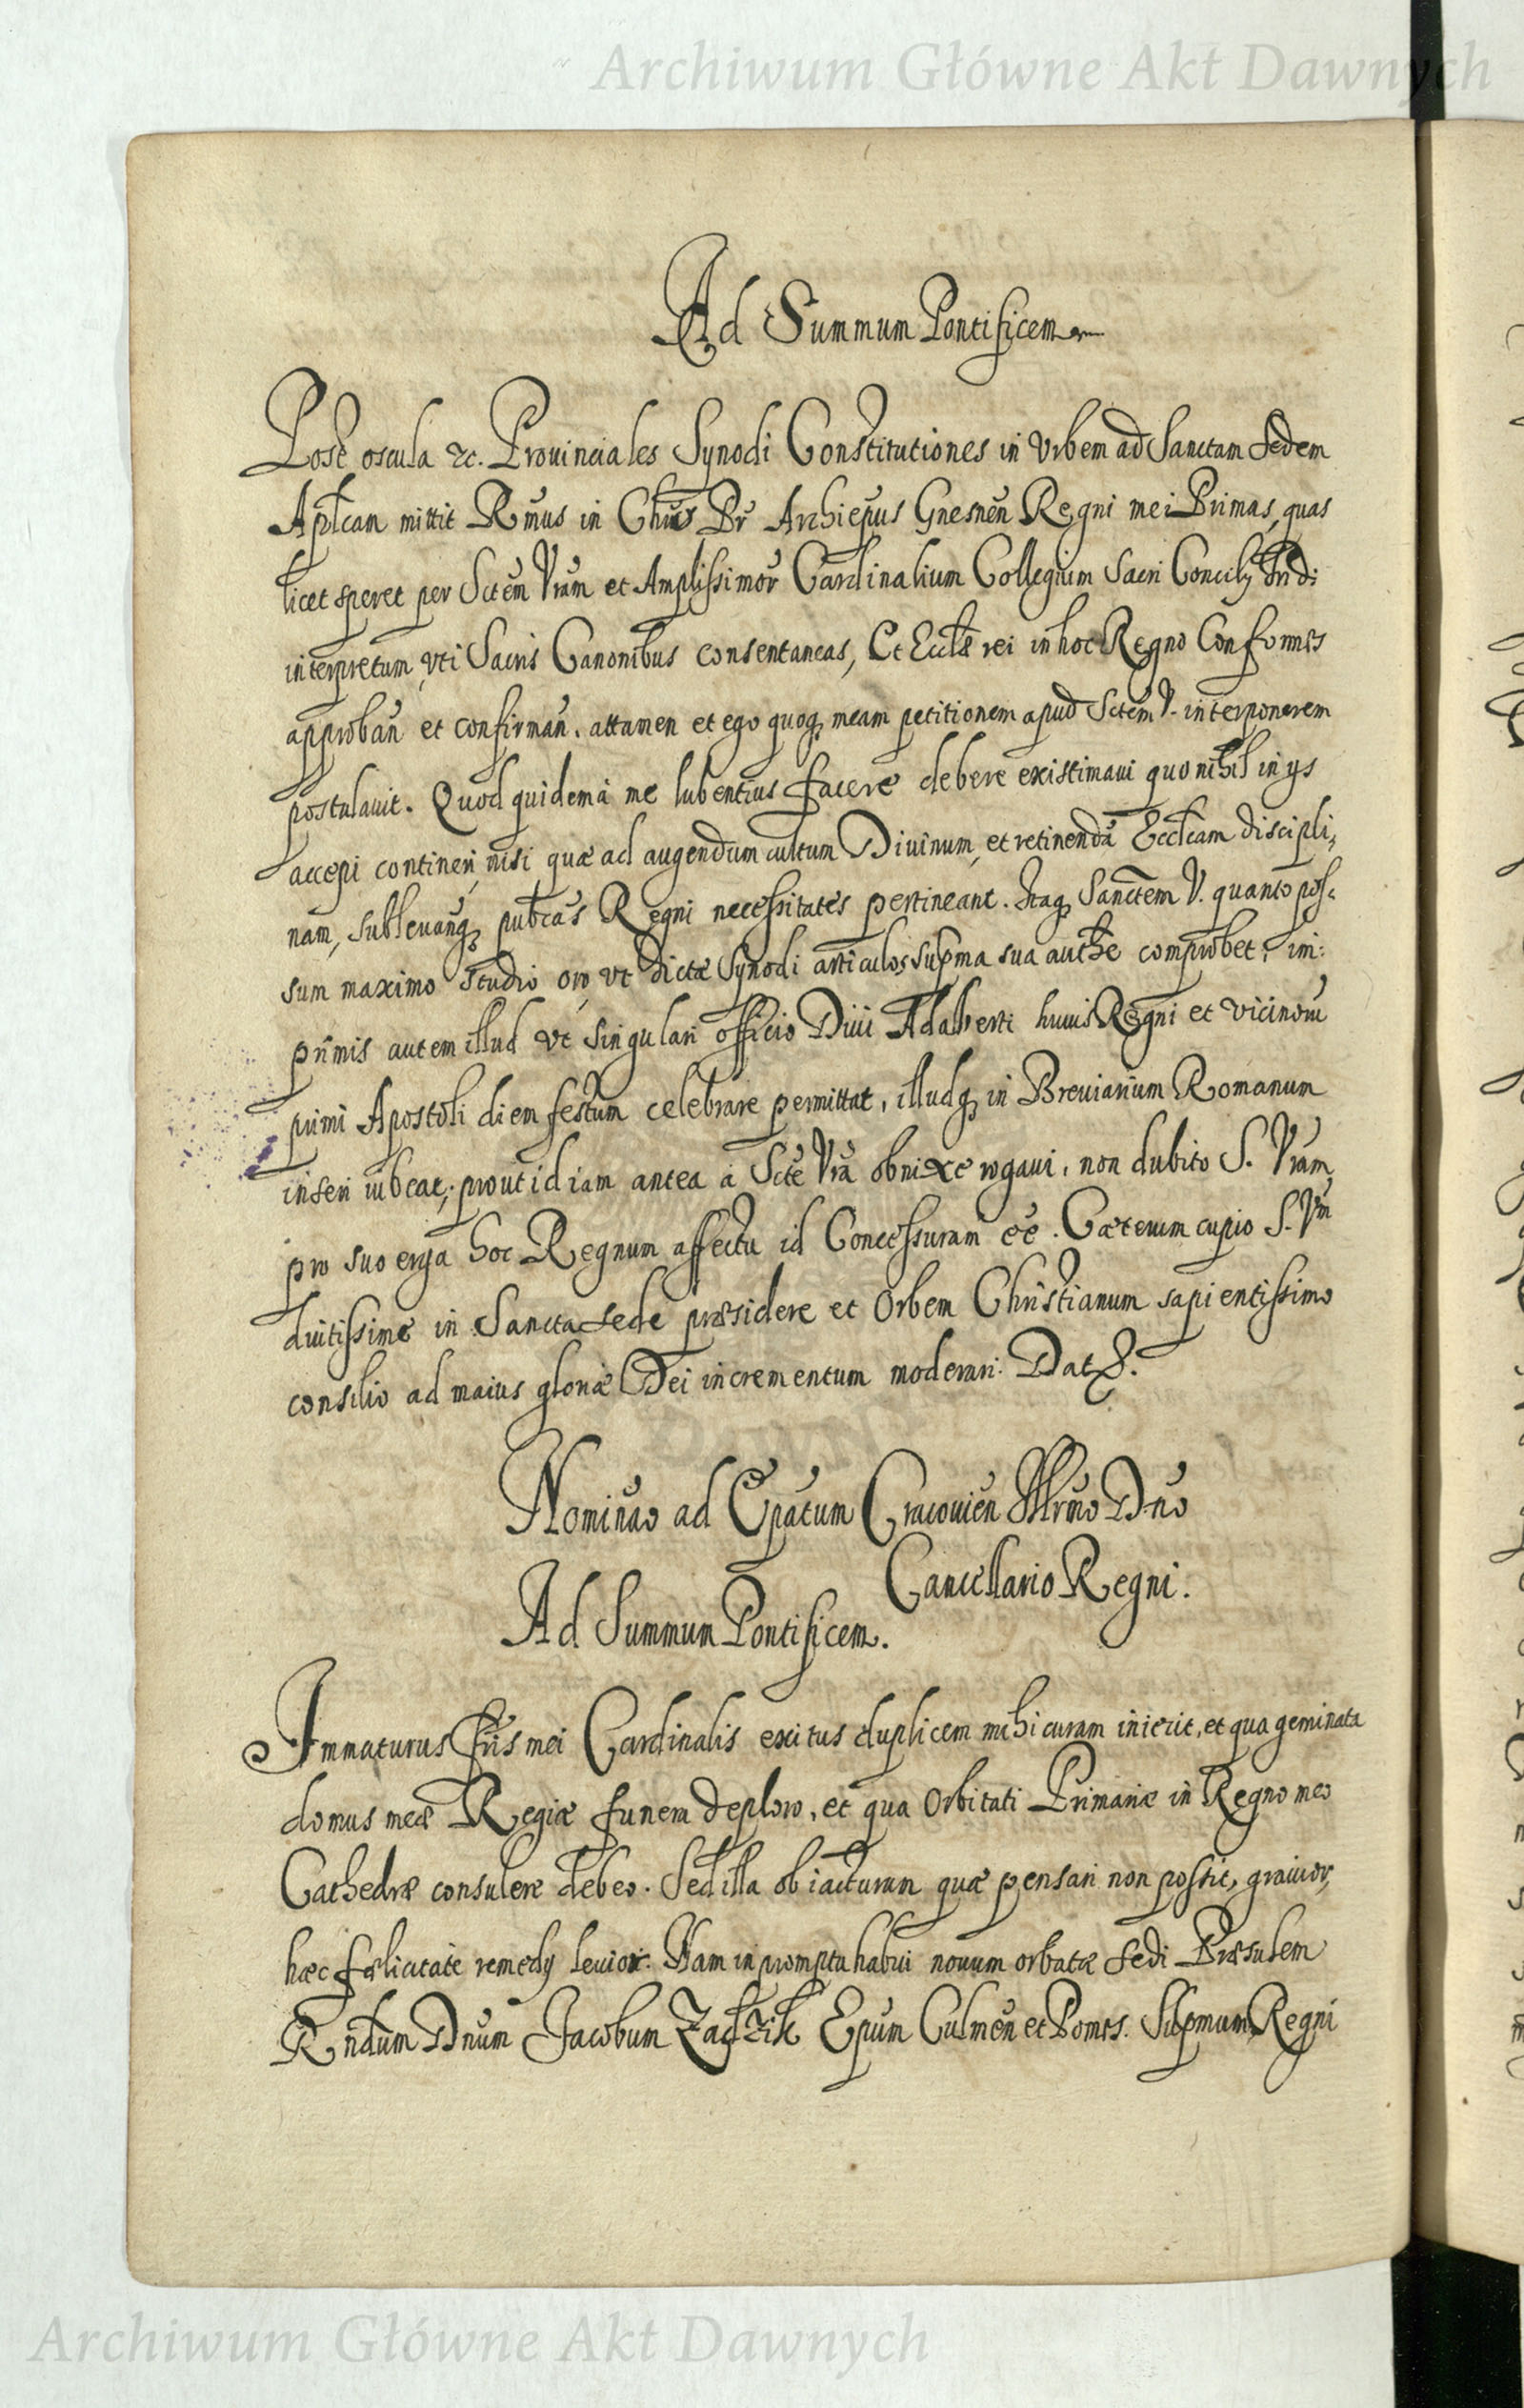 Archiwum Główne Akt Dawnych
Ad Summum Pontificem
Post oscula &c. Prouinciales Synodi Constitutiones in Vrbem ad Sanctam Sedem
Aplcam mittit Rmus in Chro Pr Archiepus Gnesnen Regni mei Primas, quas
licet speret per Sctem Vram et Amplissimor Cardinalium Collegium Sacri Concilij Tridi
interpretum, vti Sacris Canonibus consentaneas, Et Eccliae rei in hoc Regno Conformes
approban et confirman. attamen et ego quoq meam petitionem apud Sctem V. interponerem
postulauit. Quod quidem à me lubentius facere debere existimaui quo nihil in ijs
accepi contineri, nisi quae ad augendum cultum Diuinum, et retinendã Ecclcam discipli,
nam, subleuanq publcas Regni necessitates pertineant. Itaq Sanctem V. quanto pos-
sum maximo studio oro, vt dictae Synodi articulos supma sua authe comprobet, im:
primis autem illud vt singulari officio Diui Adalberti huius Regni et vicinorũ
primi Apostoli diem festum celebrare permittat, illudq in Breuiarium Romanum
inseri iubeat, prout id iam antea à Scte Vra obnixe rogaui, non dubito S. Vram
pro suo erga hoc Regnum affectu id Concessuram eẽ. Caeterum cupio S. Vm
diutissime in Sancta Sede praesidere et Orbem Christianum sapientissimo
consilio ad maius gloriae Dei incrementum moderari. Dat &.
Nominao ad Epatum Cracouien Illrmo Dno
Cancellario Regni.
Ad Summum Pontificem.
Immaturus Fris mei Cardinalis exitus duplicem mihi curam iniecit, et qua geminata
domus meae Regiae funera deploro, et qua Orbitati Primariae in Regno meo
Cathedrae consulere debeo. Sed illa ob iacturam quae pensari non possit, grauior,
haec faelicitate remedij leuior. Nam in promptu habui nouum orbatae Sedi Praesulem
Rndum Dnum Jacobum Zadzik Epum Culmen et Pomes. Supmum Regni
Archiwum Główne Akt Dawnych